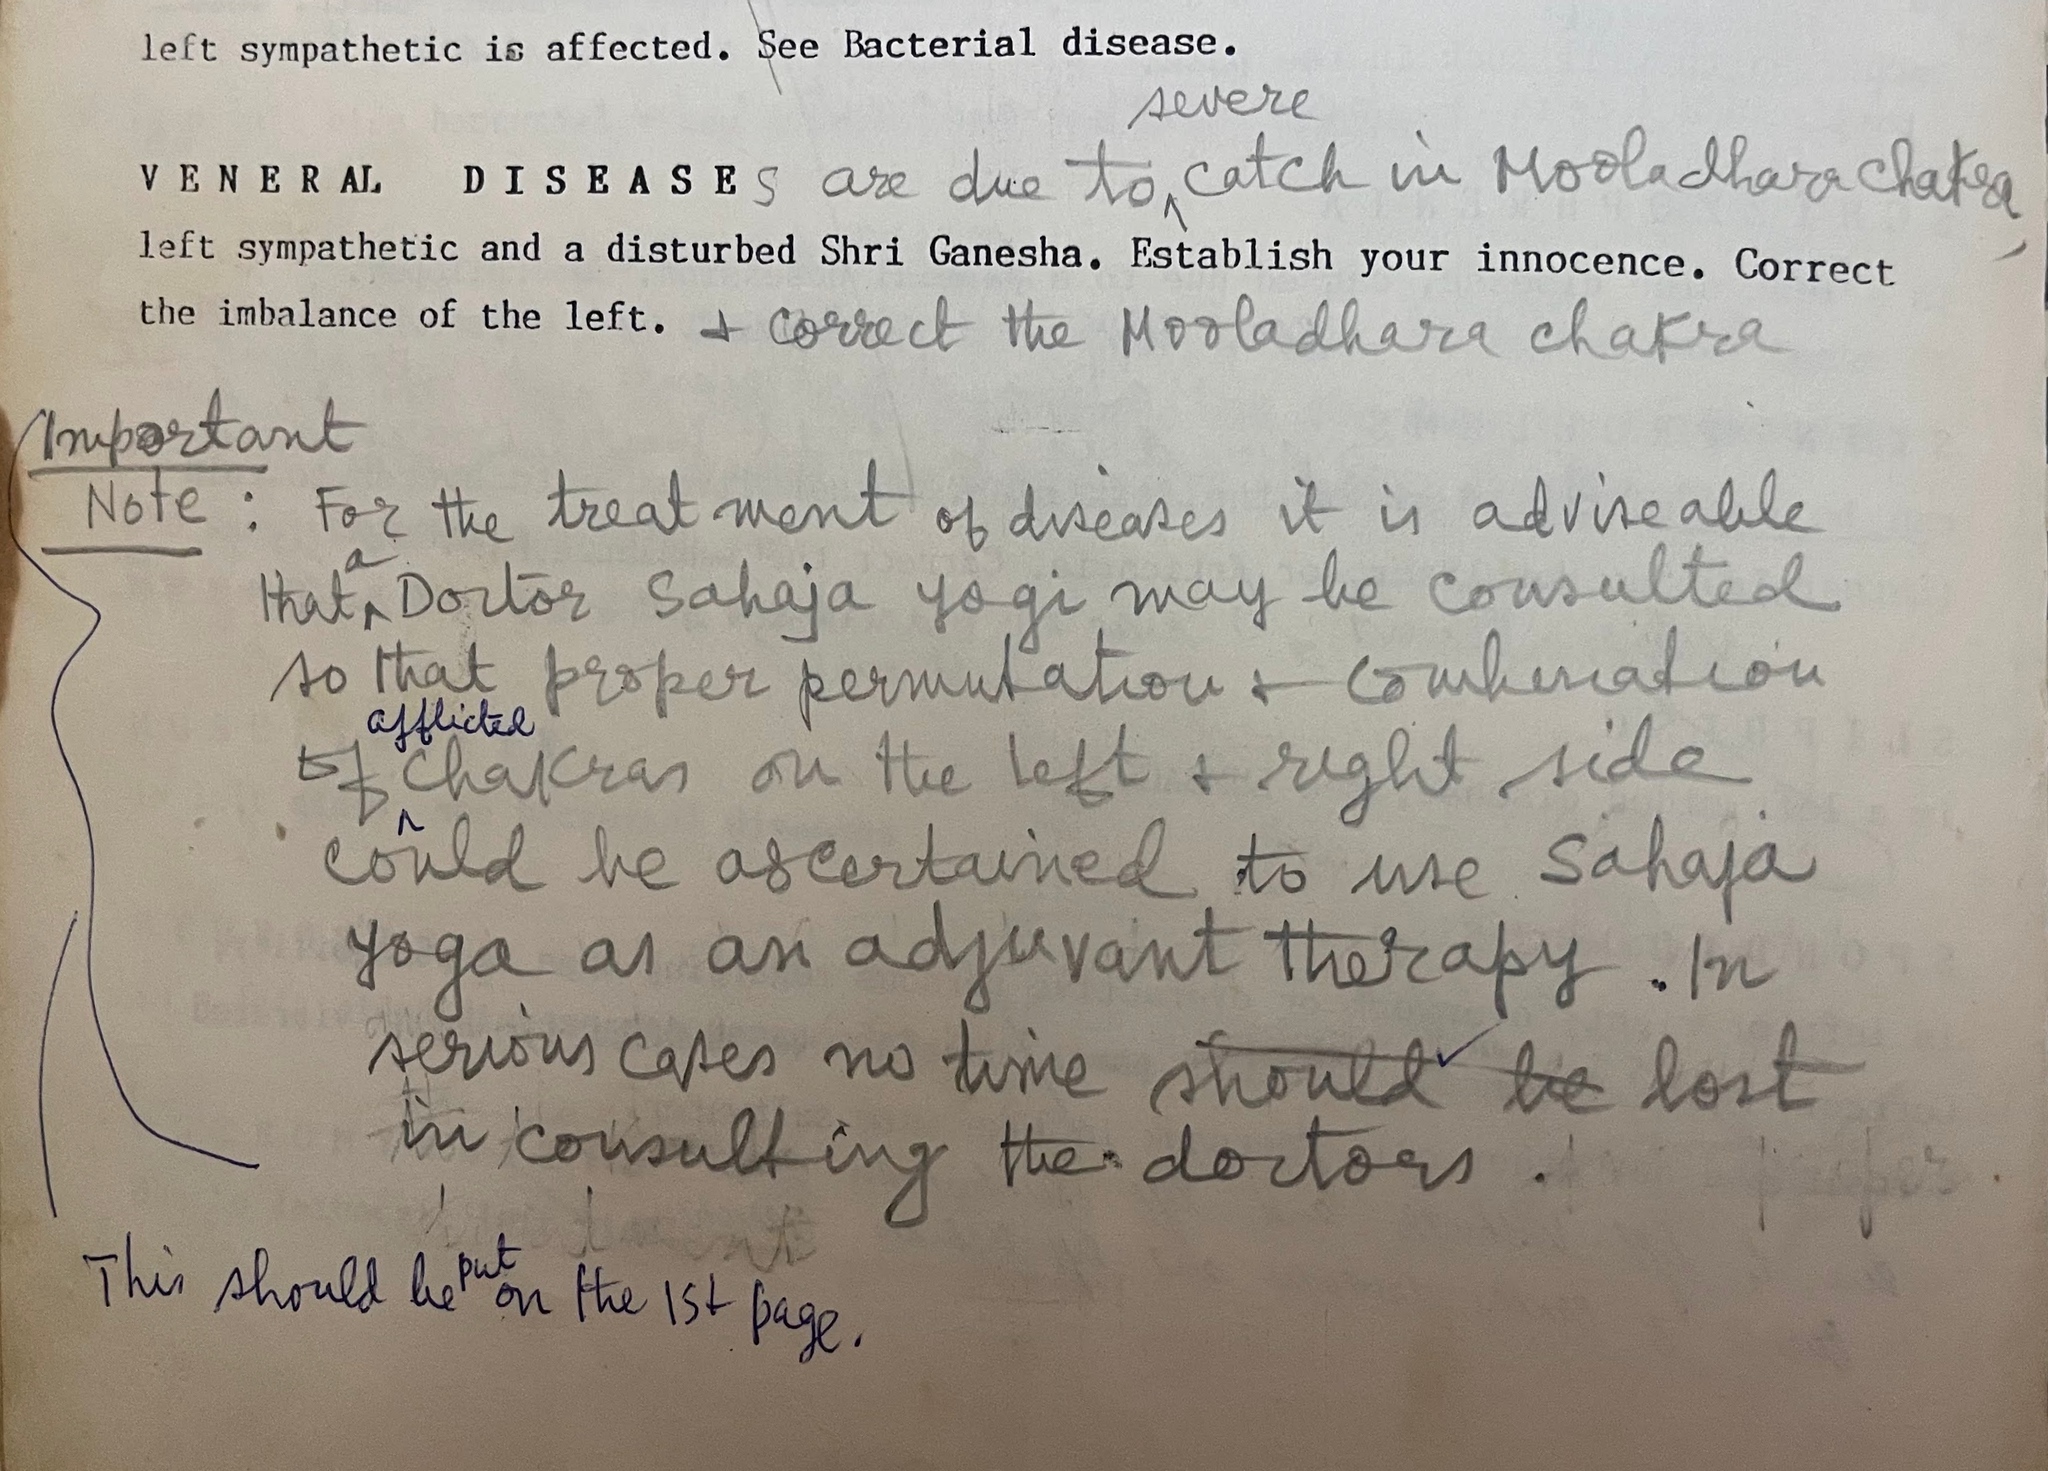 left sympathetic is affected. See Bacterial disease.
severe
VENERAL DISEASES are due to ^ catch in Mooladhara Chakra,
left sympathetic and a disturbed Shri Ganesha. Establish your innocence. Correct
the imbalance of the left. & correct the Mooladhara chakra
Important
Note : For the treatment of diseases it is adviseable
a
that ^ Doctor Sahaja yogi may be consulted
so that proper permutation & combination
afflicted
of ^ chakras on the left & right side
could be ascertained to use Sahaja
yoga as an adjuvant therapy. In
serious cases no time should be lost
in consulting the doctors.
put
This should be on the 1st page.